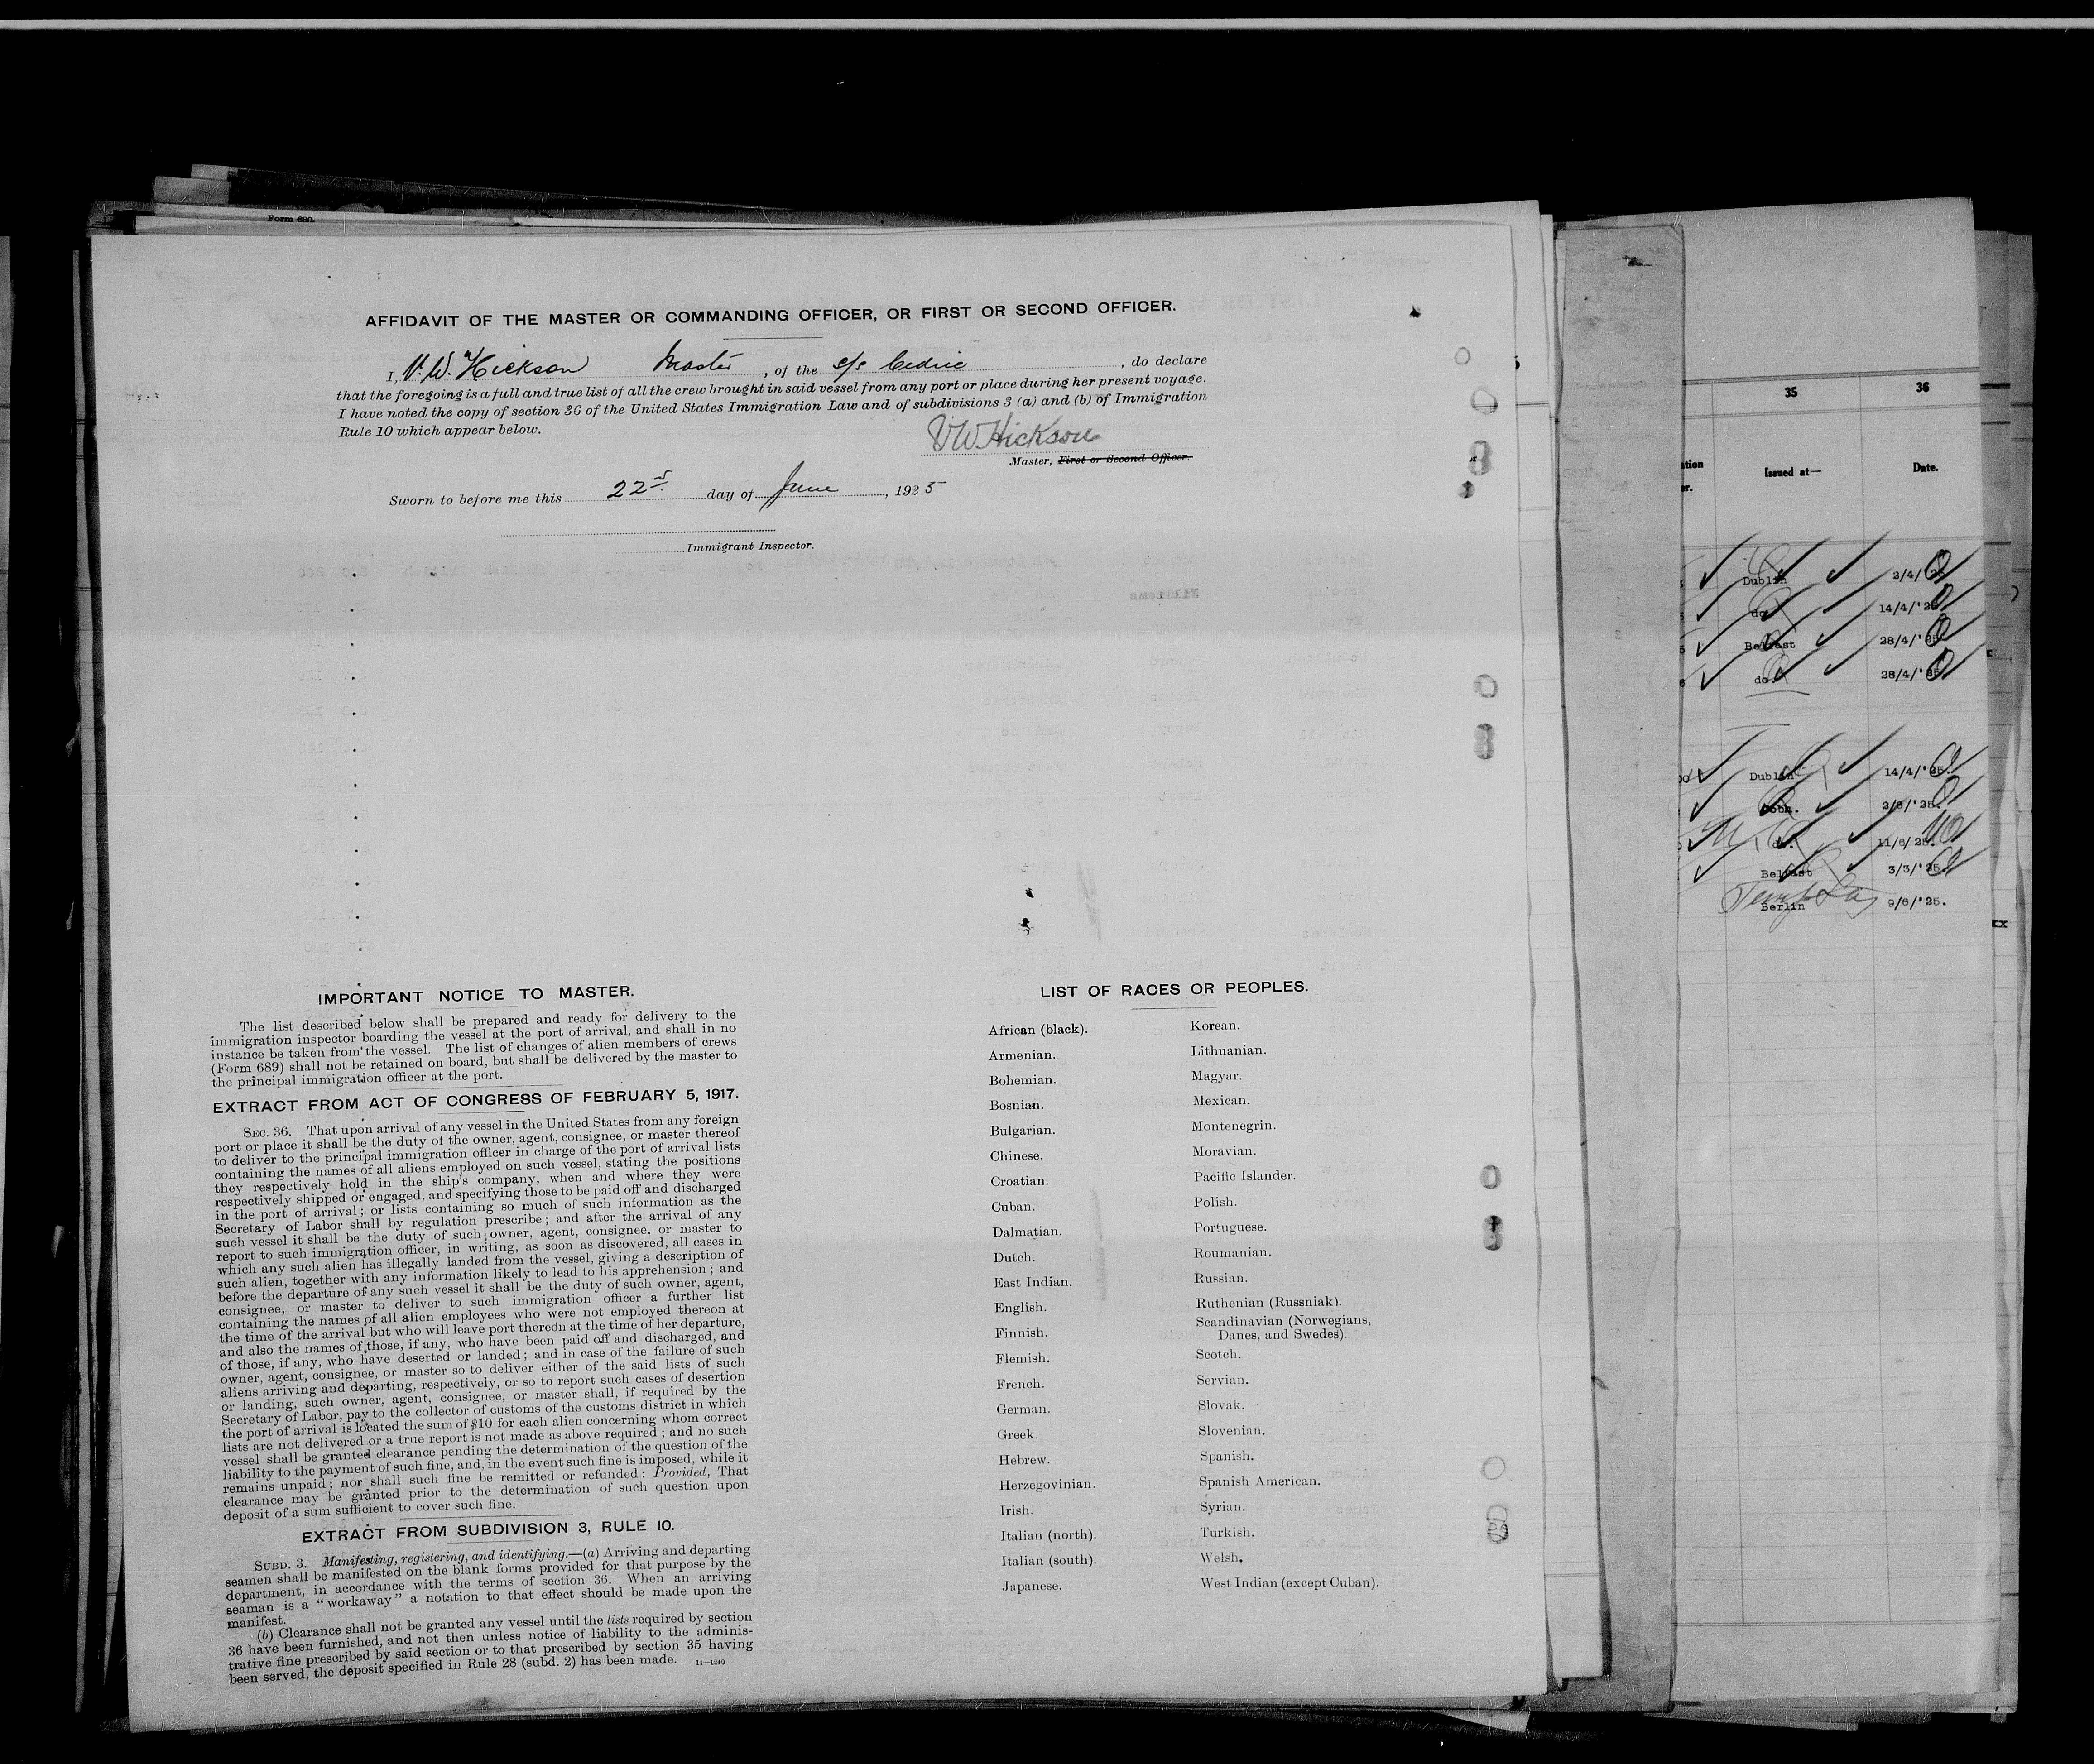 Form 680.
AFFIDAVIT OF THE MASTER OR COMMANDING OFFICER, OR FIRST OR SECOND OFFICER.
I, V. W. Hickson Master, of the s/s Cedric, do declare
that the foregoing is a full and true list of all the crew brought in said vessel from any port or place during her present voyage.
I have noted the copy of section 36 of the United States Immigration Law and of subdivisions 3 (a) and (b) of Immigration
Rule 10 which appear below.
VW Hickson
Master, First or Second Officer.
Sworn to before me this 22 day of June, 1925
Immigrant Inspector.
IMPORTANT NOTICE TO MASTER.
The list described below shall be prepared and ready for delivery to the
immigration inspector boarding the vessel at the port of arrival, and shall in no
instance be taken from the vessel. The list of changes of alien members of crews
(Form 689) shall not be retained on board, but shall be delivered by the master to
the principal immigration officer at the port.
EXTRACT FROM ACT OF CONGRESS OF FEBRUARY 5, 1917.
SEC. 36. That upon arrival of any vessel in the United States from any foreign
port or place it shall be the duty of the owner, agent, consignee, or master thereof
to deliver to the principal immigration officer in charge of the port of arrival lists
containing the names of all aliens employed on such vessel, stating the positions
they respectively hold in the ship's company, when and where they were
respectively shipped or engaged, and specifying those to be paid off and discharged
in the port of arrival; or lists containing so much of such information as the
Secretary of Labor shall by regulation prescribe; and after the arrival of any
such vessel it shall be the duty of such owner, agent, consignee. or master to
report to such immigration officer, in writing, as soon as discovered, all cases in
which any such alien has illegally landed from the vessel, giving a description of
such alien, together with any information likely to lead to his apprehension; and
before the departure of any such vessel it shall be the duty of such owner, agent,
consignee, or master to deliver to such immigration officer a further list
containing the names of all alien employees who were not employed thereon at
the time of the arrival but who will leave port thereon at the time of her departure,
and also the names of those, if any, who have been paid off and discharged, and
of those, if any, who have deserted or landed; and in case of the failure of such
owner, agent, consignee, or master so to deliver either of the said lists of such
aliens arriving and departing, respectively, or so to report such cases of desertion
or landing, such owner, agent, consignee, or master shall, if required by the
Secretary of Labor, pay to the collector of customs of the customs district in which
the port of arrival is located the sum of $10 for each alien concerning whom correct
lists are not delivered or a true report is not made as above required; and no such
vessel shall be granted clearance pending the determination of the question of the
liability to the payment of such fine, and, in the event such fine is imposed, while it
remains unpaid; nor shall such fine be remitted or refunded: Provided, That
clearance may be granted prior to the determination of such question upon
deposit of a sum sufficient to cover such fine.
EXTRACT FROM SUBDIVISION 3, RULE 10.
SUBD. 3. Manifesting, registering, and identifying.—(a) Arriving and departing
seamen shall be manifested on the blank forms provided for that purpose by the
department, in accordance with the terms of section 36. When an arriving
seaman is a "workaway" a notation to that effect should be made upon the
manifest.
(b) Clearance shall not be granted any vessel until the lists required by section
36 have been furnished, and not then unless notice of liability to the adminis-
trative fine prescribed by said section or to that prescribed by section 35 having
been served, the deposit specified in Rule 28 (subd. 2) has been made. 14—1240
LIST OF RACES OR PEOPLES.
African (black).
Armenian.
Bohemian.
Bosnian.
Bulgarian.
Chinese.
Croatian.
Cuban.
Dalmatian.
Dutch.
East Indian.
English.
Finnish.
Flemish.
French.
German.
Greek.
Hebrew.
Herzegovinian.
Irish.
Italian (north).
Italian (south).
Japanese.
Korean.
Lithuanian.
Magyar.
Mexican.
Montenegrin.
Moravian.
Pacific Islander.
Polish.
Portuguese.
Roumanian.
Russian.
Ruthenian (Russniak).
Scandinavian (Norwegians,
Danes, and Swedes).
Scotch.
Servian.
Slovak.
Slovenian.
Spanish.
Spanish American.
Syrian.
Turkish.
Welsh.
West Indian (except Cuban).
35 36
Issued at— Date.
Dublin 2/4/'25
do. 14/4/'25
Belfast 28/4/'25
do. 28/4/'25
Dublin 14/4/'25.
Cobh. 2/6/'25.
do. 11/6/'25.
Belfast 3/3/'25.
Berlin 9/6/'25.